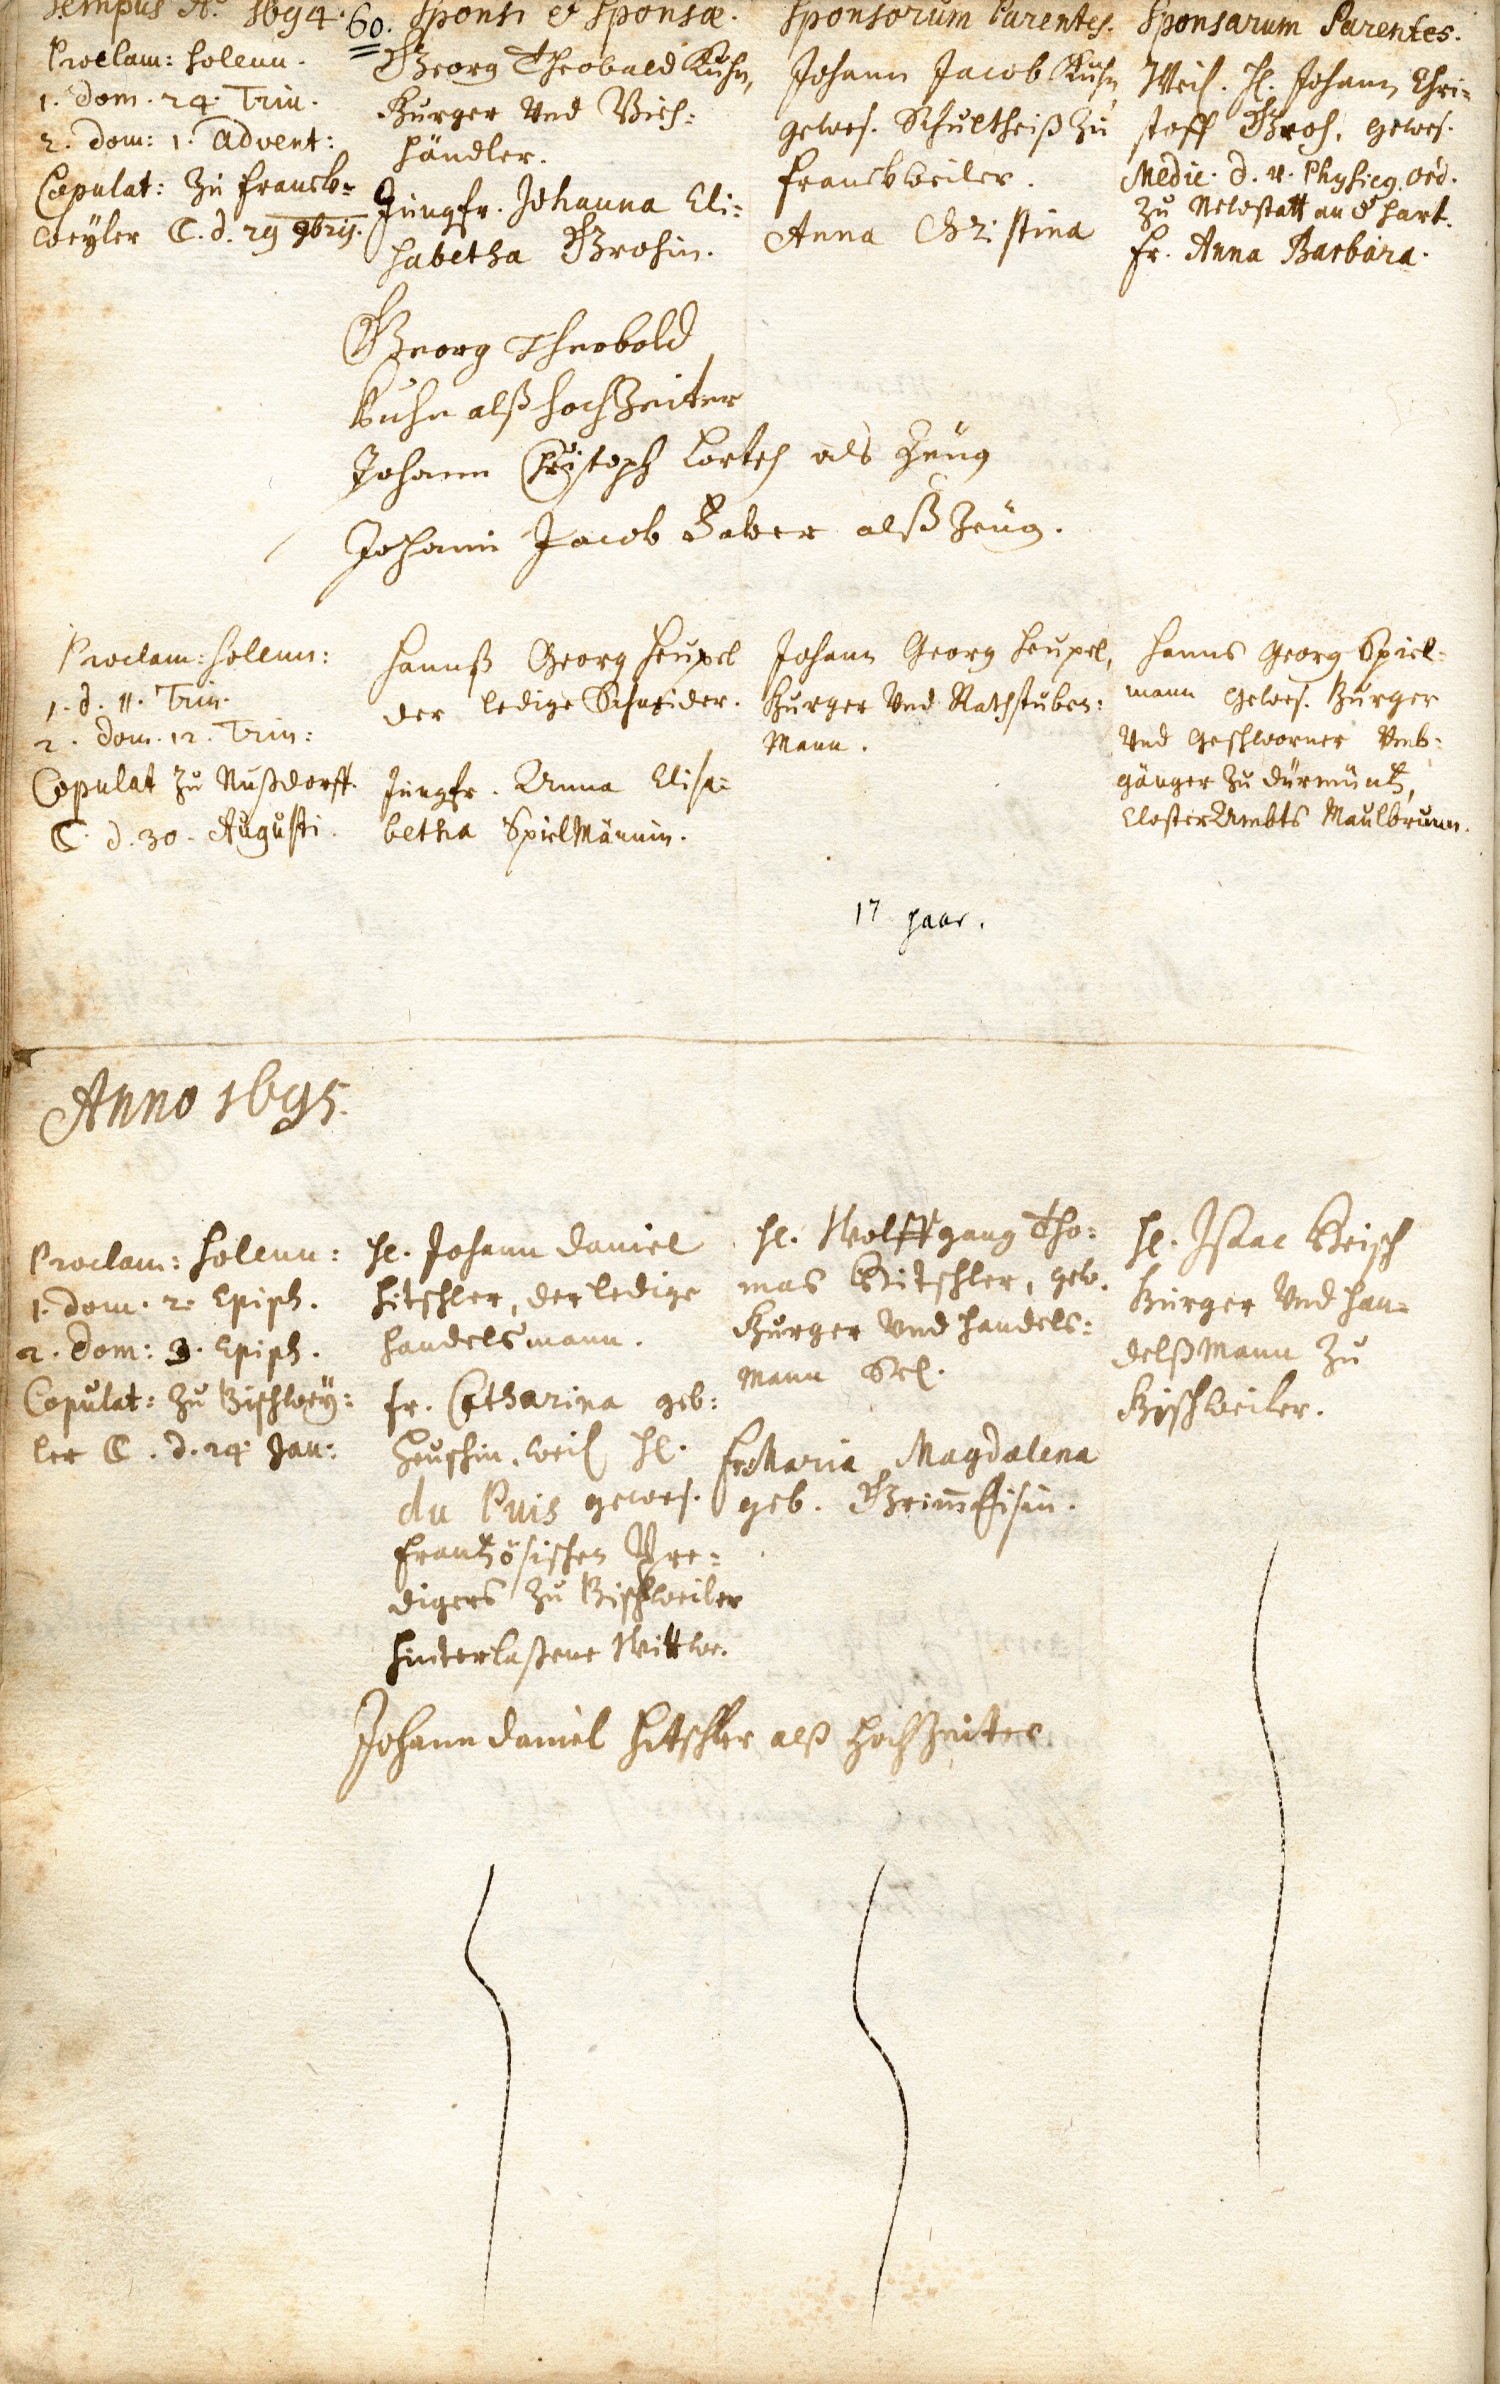 Tempus A.o 1694.
60.
Sponsi et Sponsæ.
Sponsorum Parentes.
Sponsarum Parentes.
Proclam: solenn.
1. Dom. 24. Trin.
2. Dom: 1. Advent:
Copulat: zu Franck=
weyler C. d. 29 9bris.
Georg Theobald Kuhn,
Burger und Vieh=
händler.
Jungfr. Johanna Eli=
sabetha Grosin.
Johann Jacob Kuhn
gewes. Schultheiß zu
Franckweiler.
Anna Christina
Weil. H. Johann Chri=
stoff Groß, gewes.
Medic. D. u. Physicq. Ord.
zu Newstatt an d Hart.
Fr. Anna Barbara.
Georg Theobold
Kuhn alß hochZeiter
Johann Christoph als Zeüg
Johann Jacob alß Zeüg.
Proclam: solenn:
1. d. 11. Trin.
2. Dom. 12. Trin:
Copulat zu Nußdorff.
C. d. 30. Augusti.
Hannß Georg Heupel
der ledige Schneider.
Jungfr. Anna Elisa=
betha SpielMännin.
Johann Georg Heupel,
Burger und Rathstuben=
Mann.
Hanns Georg Spiel=
mann gewes. Burger
und geschworner Umb=
gänger zu Dürmüntz,
ClosterAmbts Maulbrunn.
17 paar.
Anno 1695.
Proclam: solenn:
1. Dom. 2. Epiph.
2. Dom: 3. Epiph.
Copulat: zu Bischwey=
ler C. d. 24 Jan:
H. Johann Daniel
Hitschler, der ledige
Handelsmann.
Fr. Catharina geb:
weil H.
du Puis gewes.
Frantzösischen Pre=
digers zu Bischweiler
hinterlaßene Wittwe.
H. Wolffgang Tho=
mas Hitschler, gew.
Burger und Handels=
Mann Sel.
Fr. Maria Magdalena
geb.
H. Isaac
Burger und Han=
delßMann zu
Bischweiler.
Johann Daniel Hitschler alß HochZeiter